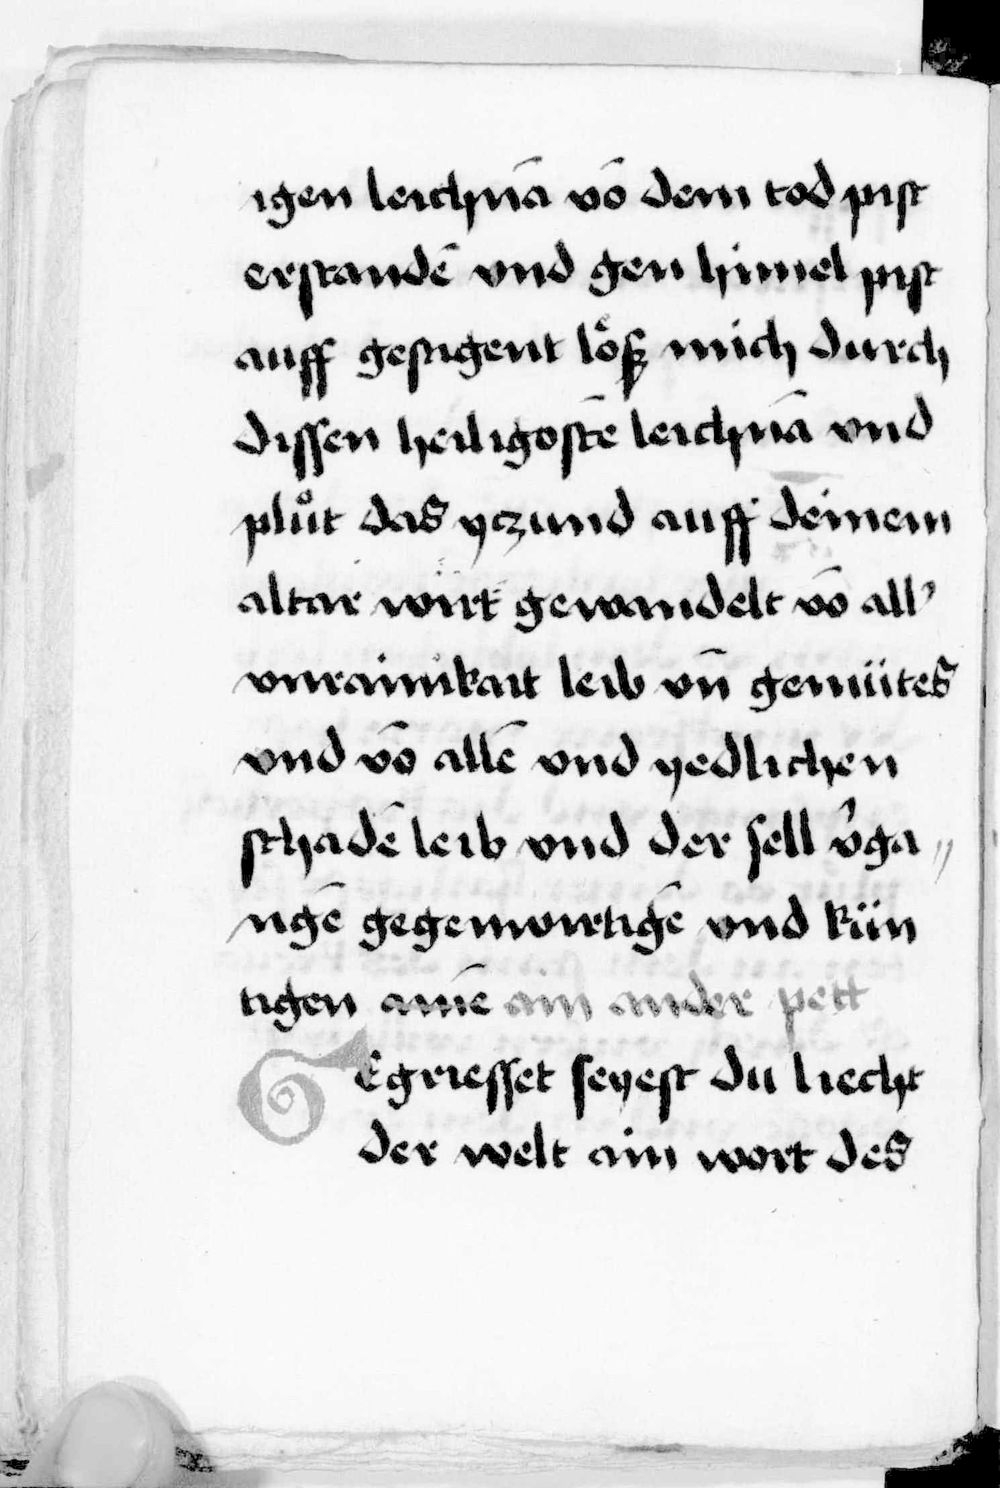 igen leichnā vō dem tod pist
erstandē vnd gen himel pist
auff gestigent lo͛ß mich durch
dissen heiligostē leichnā vnd
plůt das yczund auff deinem
altar wirt gewandelt vō all'
vnrainikait leib vn̄ gemütes
vnd vō allē vnd yedlichen
schadē leib vnd der sell v'ga„
ngē gegenwirtigē vnd kün
tigen amē ain ander pett
Gegriesset seyest du liecht
der welt ain wort des